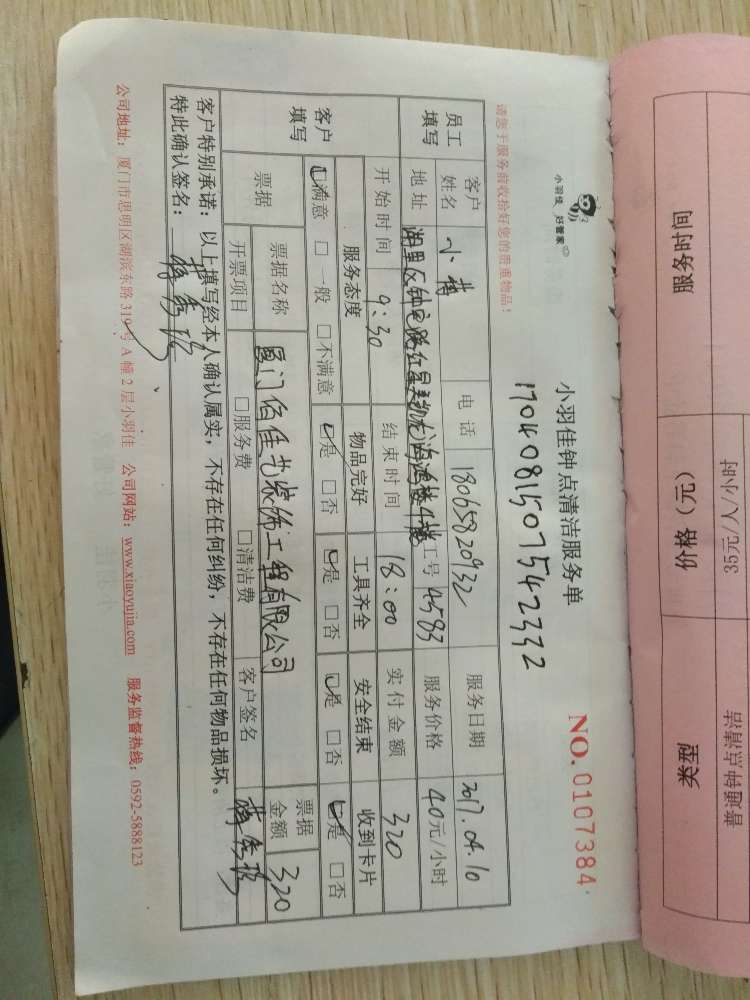 小羽佳 好管家
小羽佳钟点清洁服务单
NO.0107384
1704081507542332
请您于服务前收拾好您的贵重物品!
员工填写
客户姓名 小蒋 电话 18065820932 服务日期 2017.04.10
地址 湖里区钟宅路红星美凯龙鸿楼4楼 工号 A583 服务价格 40元/小时
客户填写
开始时间 9:30 结束时间 18:00 实付金额 320
服务态度 物品完好 工具齐全 安全结束 收到卡片
☑满意 □一般 □不满意 ☑是 □否 ☑是 □否 ☑是 □否 ☑是 □否
票据 票据名称 厦门佰佳艺装饰工程有限公司 票据金额 320
开票项目 □服务费 □清洁费 客户签名
客户特别承诺:以上填写经本人确认属实,不存在任何纠纷,不存在任何物品损坏。
特此确认签名:
公司地址:厦门市思明区湖滨东路319号A幢2层小羽佳 公司网站:www.xiaoyujia.com 服务监督热线:0592-5888123
服务时间 价格(元) 类型
35元/人/小时 普通钟点清洁